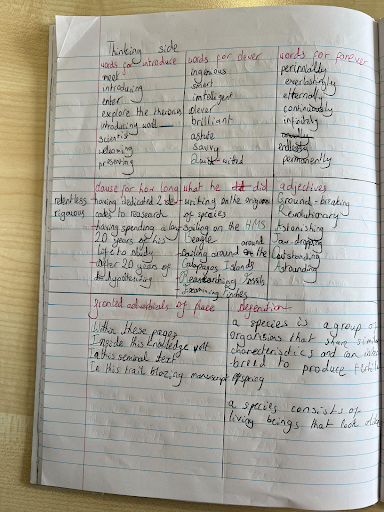 Thinking side
words for introduce
meet
introducing
enter
explore the
introducing
scientist
welcoming
presenting
words for clever
ingenious
smart
intelligent
clever
brilliant
astute
savvy
quick-witted
words for forever
perpinially
everlastingly
eternally
continuously
infinitly
endlessly
permenently
clause for how long
relentless
rigourous
having dedicated 2
to research
having spending a long
20 years of his
life to study
after 20 years of
hypothesising
what he did
writing on the origin
of species
sailing on the HMS
Beagle
sailing around the
Galapagos Islands
Researching fossils
Examining finches
adjectives
Ground-breaking
Revolutionary
Astonishing
Jaw-dropping
Outstanding
Astounding
fronted adverbials of place
Within these pages
Inside this knowledge
In this seminal text
In this trait blazing manuscript
Defenation
a species is a group of
organisms that share
characteristics and can
breed to produce
offspring
a species consists of
living beings that look